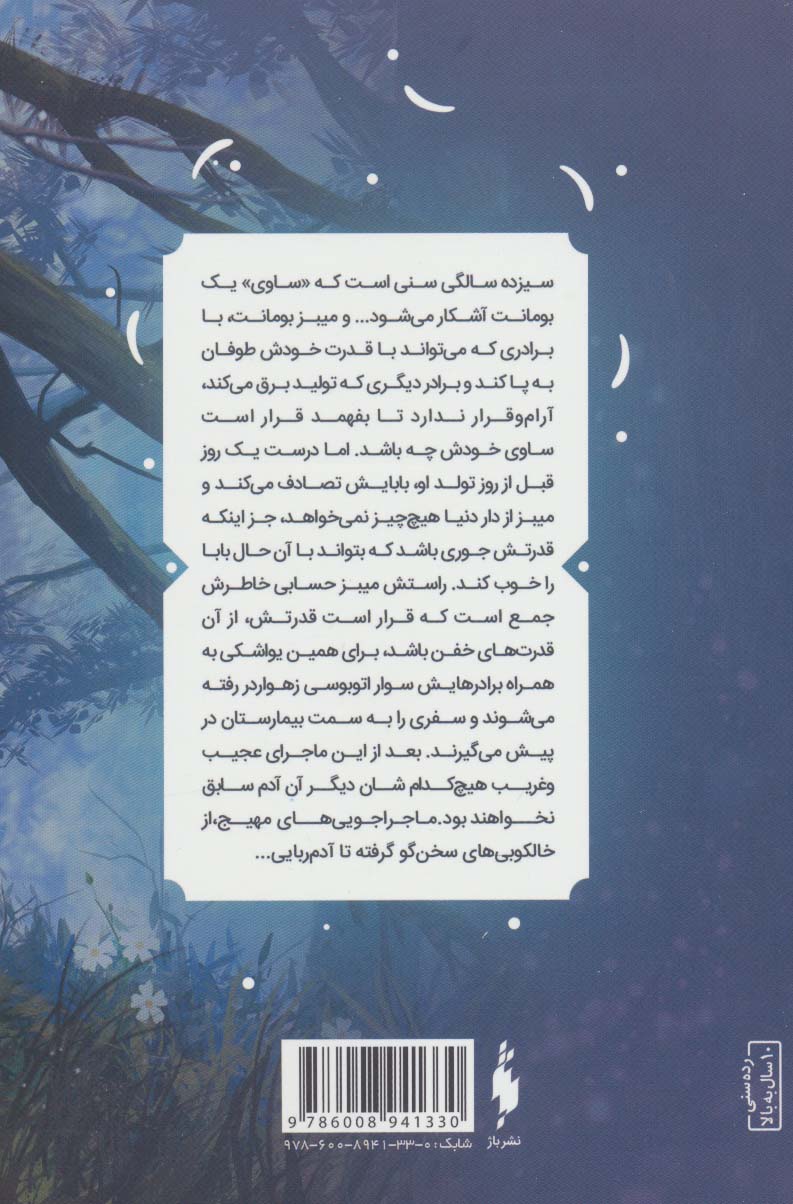 سیزده سالگی سنی است که «ساوی» یک
بومانت آشکار می‌شود... و میبز بومانت، با
برادری که می‌تواند با قدرت خودش طوفان
به پا کند و برادر دیگری که تولید برق می‌کند،
آرام‌وقرار ندارد تا بفهمد قرار است
ساوی خودش چه باشد. اما درست یک روز
قبل از روز تولد او، بابایش تصادف می‌کند و
میبز از دار دنیا هیچ‌چیز نمی‌خواهد، جز اینکه
قدرتش جوری باشد که بتواند با آن حال بابا
را خوب کند. راستش میبز حسابی خاطرش
جمع است که قرار است قدرتش، از آن
قدرت‌های خفن باشد، برای همین یواشکی به
همراه برادرهایش سوار اتوبوسی زهواردر رفته
می‌شوند و سفری را به سمت بیمارستان در
پیش می‌گیرند. بعد از این ماجرای عجیب
وغریب هیچ‌کدام شان دیگر آن آدم سابق
نخواهند بود.ماجراجویی‌های مهیج،از
خالکوبی‌های سخن‌گو گرفته تا آدم‌ربایی...
9 786008 941330
شابک: ۹۷۸-۶۰۰-۸۹۴۱-۳۳-۰
نشر باژ
رده سنی
۱۰ سال به بالا